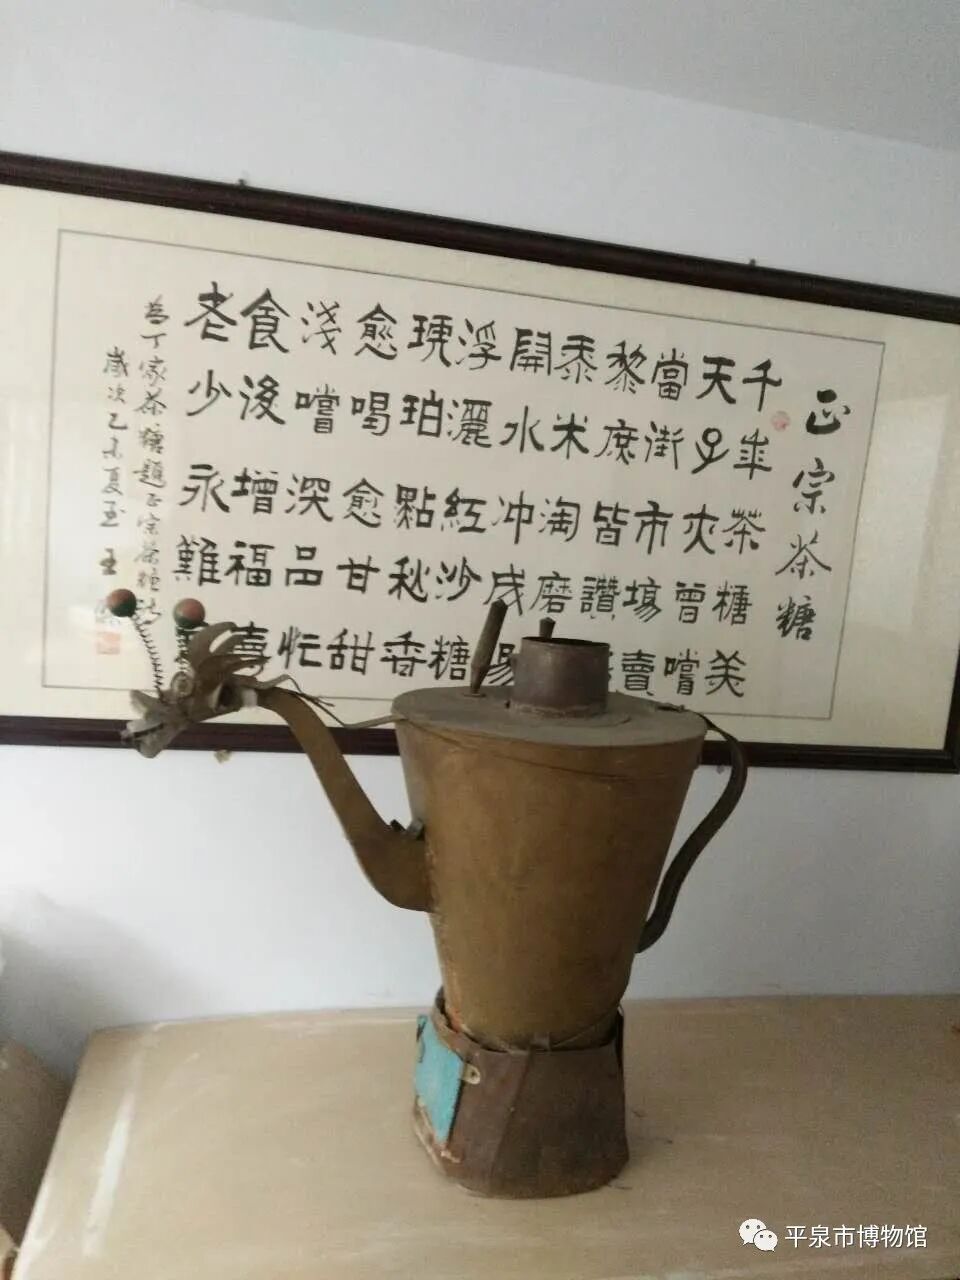 正宗茶糖
千年茶糖美
天子亦曾嚐
當街市塲賣
黎庶皆讚
黍米淘磨
開水冲成
浮灑紅沙糖
琥珀點秋香
愈喝愈甘甜
淺嚐深品忙
食後增福壽
老少永難
為丁家茶糖題正宗茶糖詩
歲次乙未夏玉王
平泉市博物馆